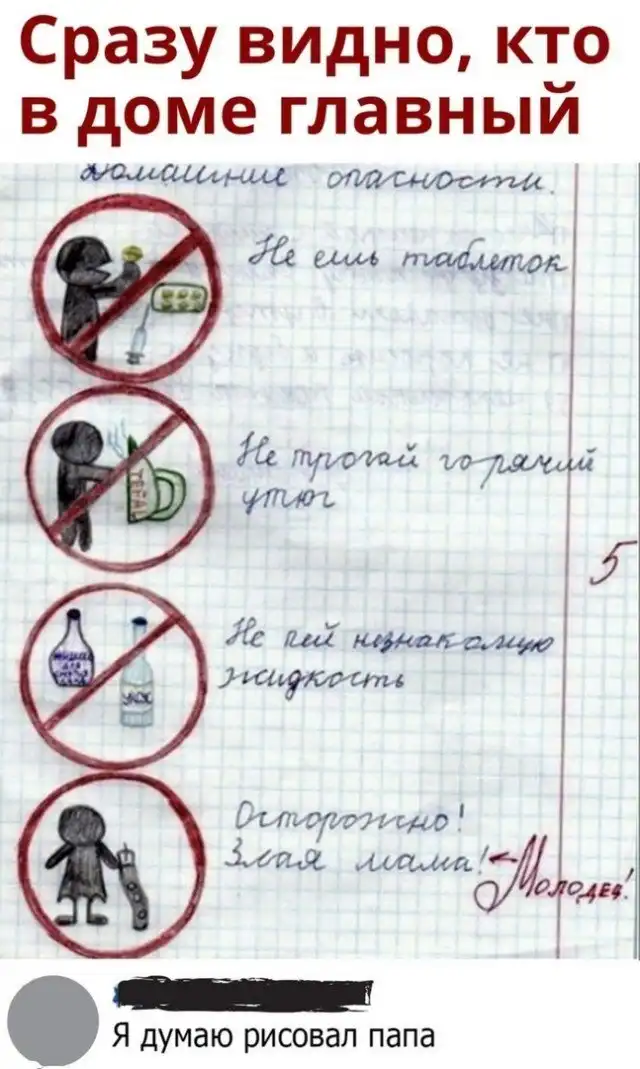 Сразу видно, кто
в доме главный
Домашние опасности.
Не ешь таблеток
Не трогай горячий
утюг
TEFAL
5
Не пей незнакомую
жидкость
УКСУС
Осторожно!
Злая мама!
Молодец!
Я думаю рисовал папа